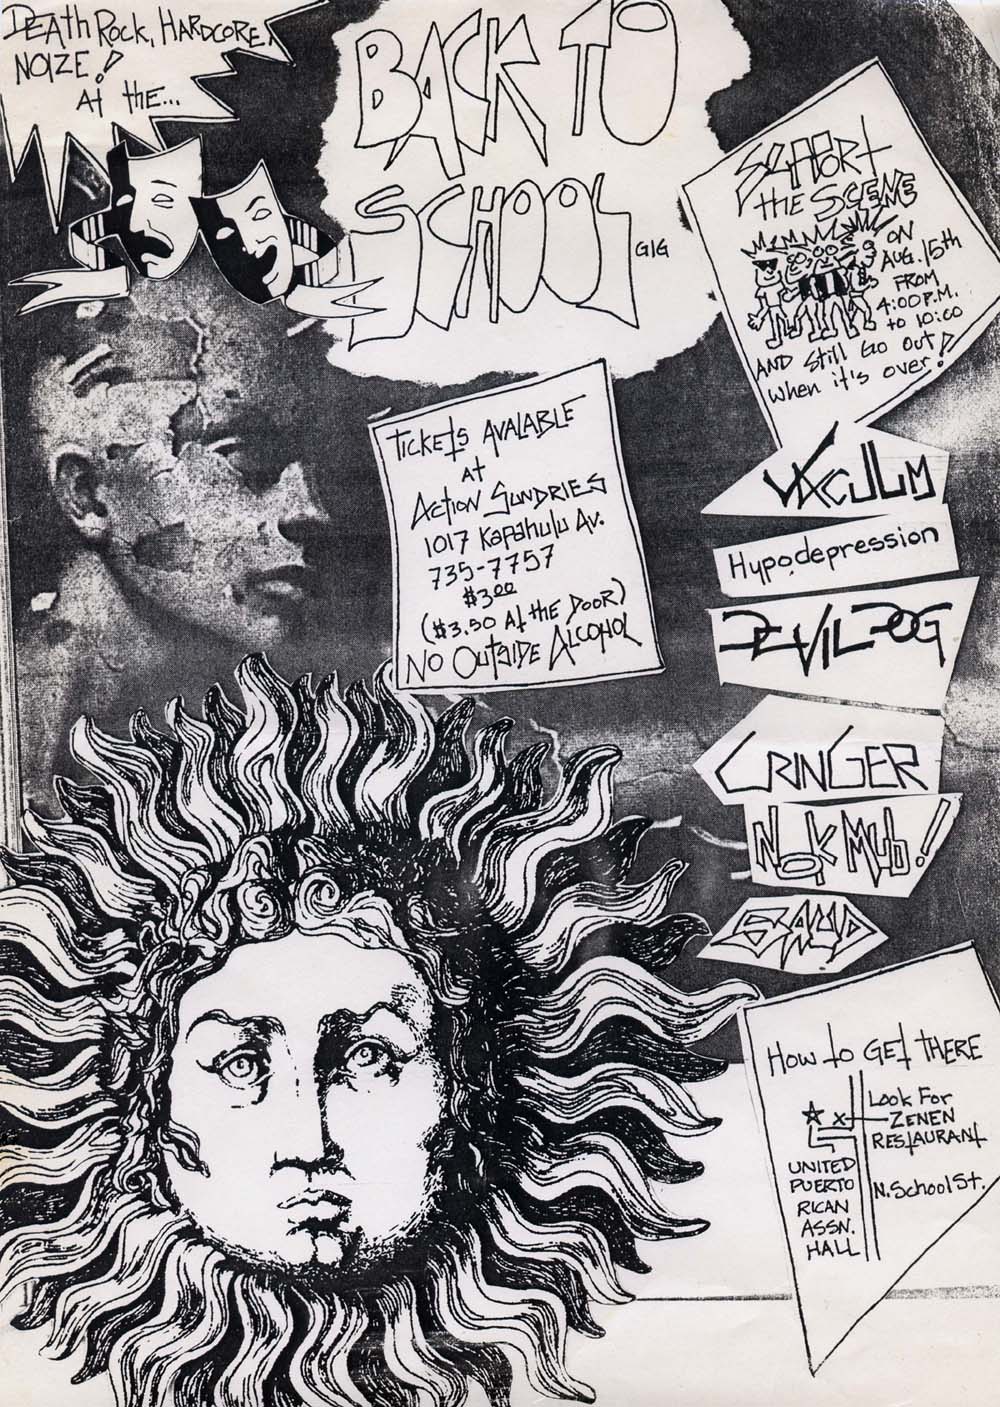 DEATH ROCK, HARDCORE,
NOIZE!
At the...
BACK TO
SCHOOL
GIG
SUPPORT
the SCENE
ON
AUG. 15th
FROM
4:00 P.M.
to 10:00
AND Still Go Out
When it's over!
TICKETS AVALABLE
AT
ACTION SUNDRIES
1017 Kapahulu Av.
735-7757
$3.00
($3.50 At the DOOR)
NO OUTSIDE ALCOHOL
VACUUM
Hypodepression
DEVIL DOG
CRINGER
NOK MUB!
How to GEt THERE
Look For
ZENEN
RESTAURANT
N. School St.
UNITED
PUERTO
RICAN
ASSN.
HALL